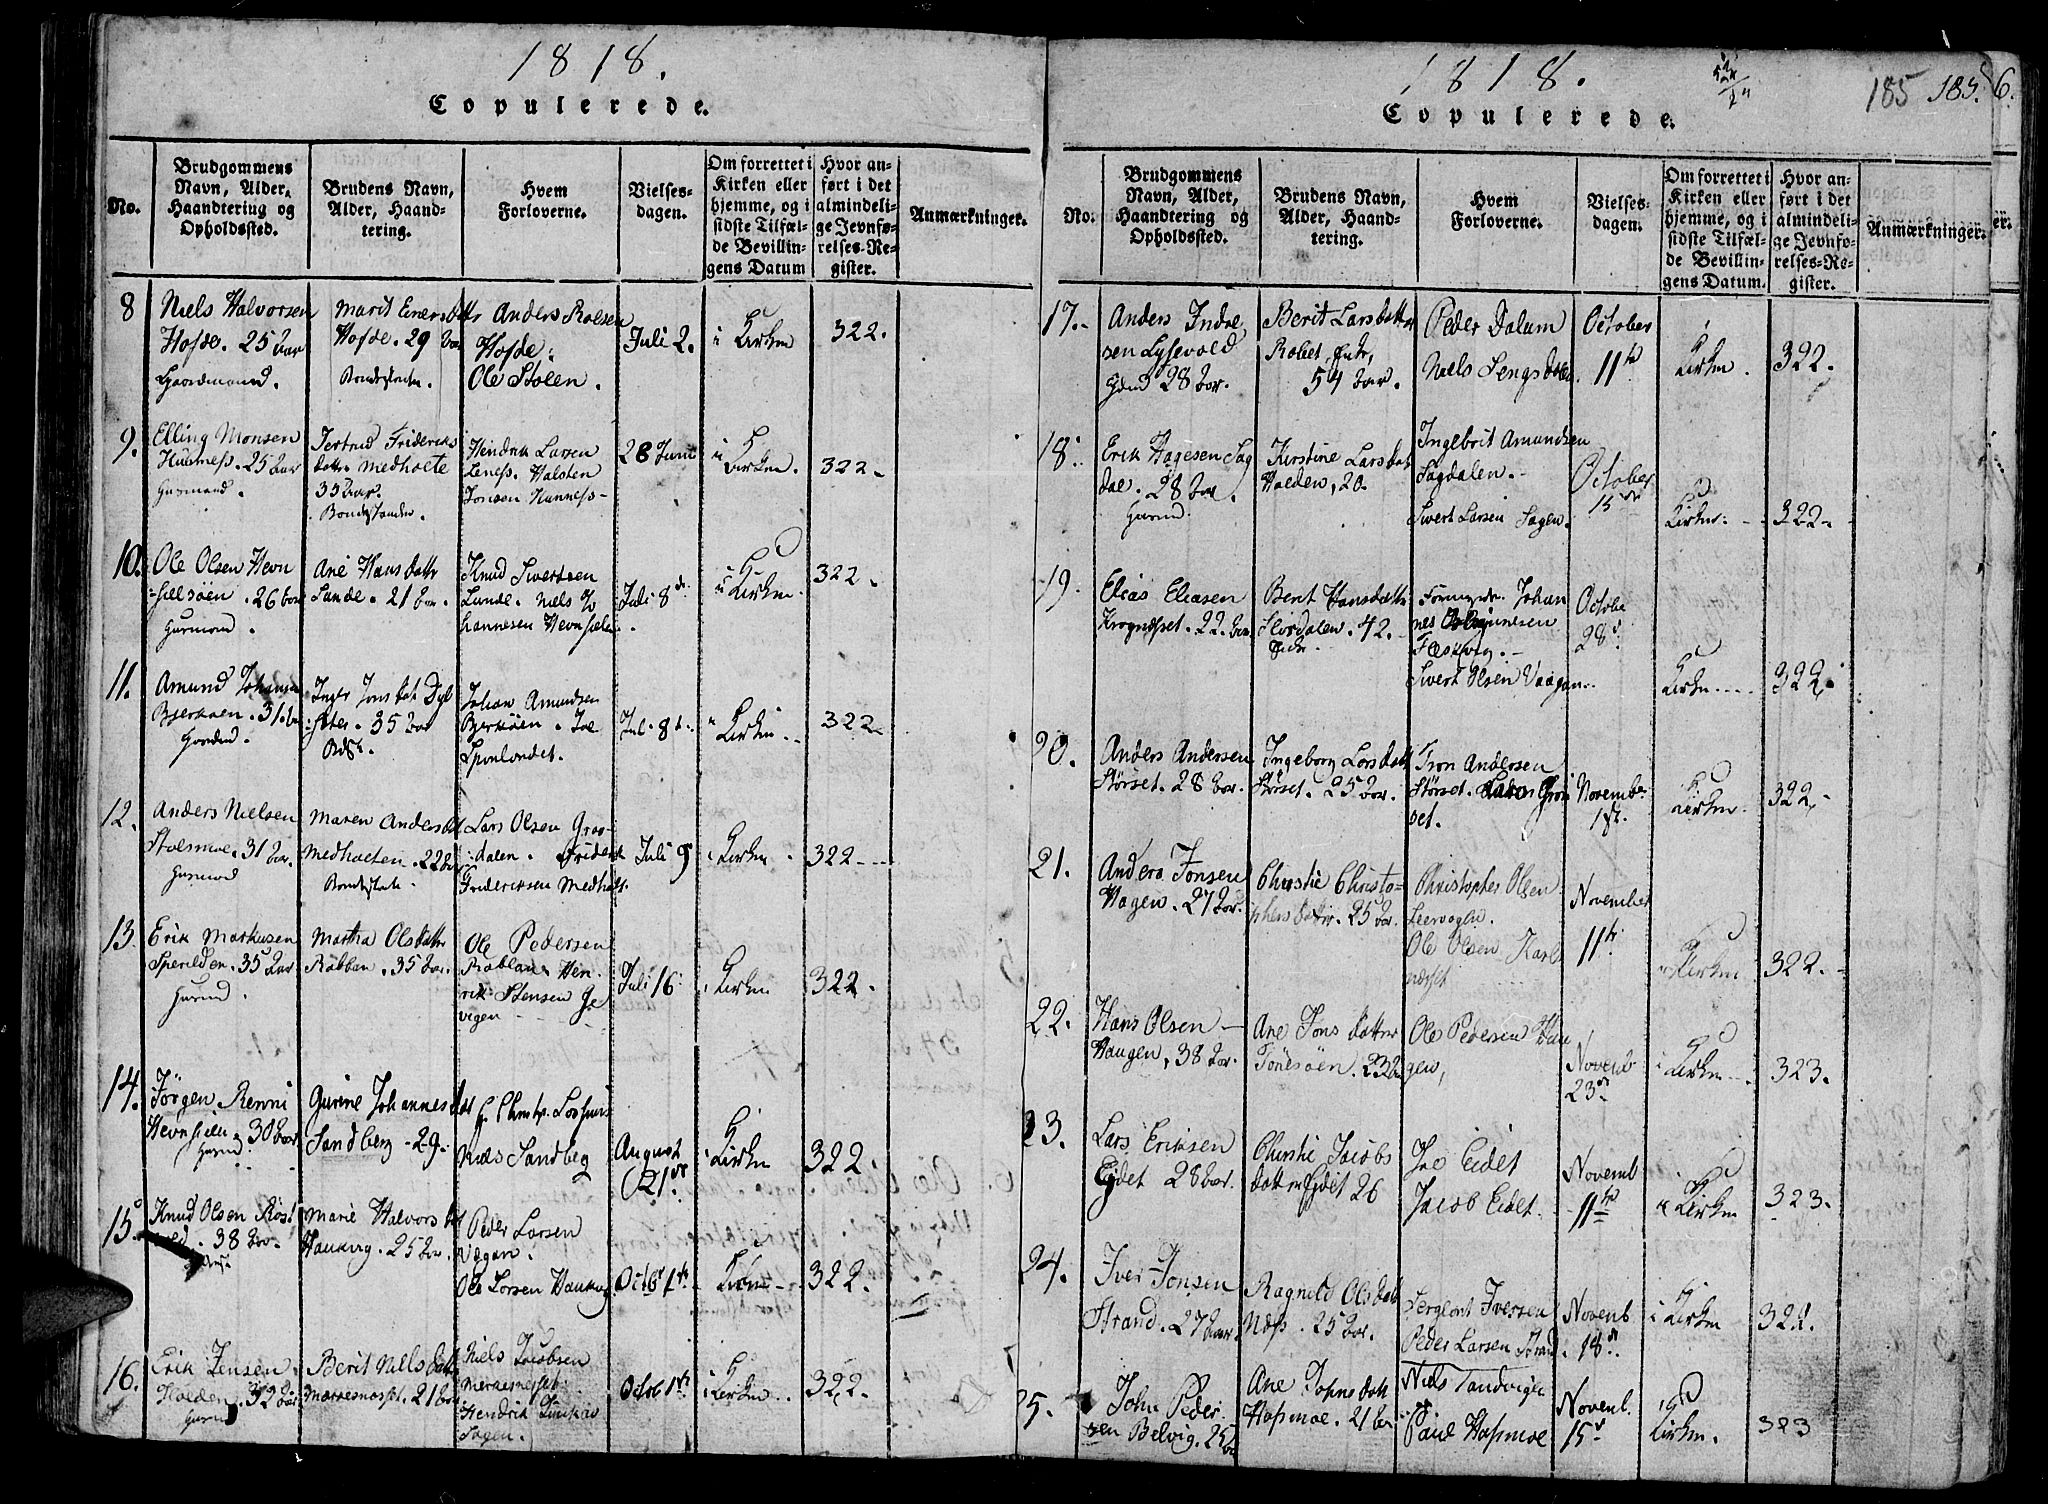 1818.
Copulerede.
No.
Brudgommens
Navn, Alder,
Haandtering og
Opholdssted.
Brudens Navn,
Alder, Haand-
tering.
Hvem
Forloverne.
Vielses-
dagen.
Om forrettet i
Kirken eller
hjemme, og i
sidste Tilfæl-
de Bevillin-
gens Datum
Hvor an-
ført i det
almindeli-
ge Jevnfø-
relses-Re-
gister.
Anmærkninger.
8
Niels Halvorsen
Hofde. 25 Aar
Gaardmand.
Marit Einersdttr
Hofde. 29 Aar
Bondestanden.
Anders Roelsen
Hofde.
Ole Stolen.
Juli 2.
i Kirken
322.
9.
Elling Monsen
25 Aar
Gurmand.
Frideriks
dattr Medhoete
35 Aar.
Bondestanden.
Hendrik Larsen
Halsten
Jonsen
28 Juni
i Kirken.
322.
10.
Ole Olsen Hevn
sielsöen. 26 Aar
Gurmand.
Ane Hans dattr
Lunde. 21 Aar.
Knud Sivertsen
Lunde. Niels Jo
hannesen
Juli 8de
i Kirken.
322.
11.
Amund Johansen
Bjerkøen. 31. Aar
Inger Jons dat
35 Aar
Johan Amundsen
Bjerköen. Joe
Juli 8d.
i Kirken.
322.
12.
Anders Nielsen
Stolsmoe. 31 Aar.
Gurmand
Maren Andersdat
Medhoeten. 22 Aar
Bondestand.
Lars Olsen Groe-
dalen.
Frideriksen Medholt.
Juli 9
i Kirken.
322
13.
Erik Markusen
Sperilden. 35 Aar
Gurmd.
Martha Olsdattr
Rabban. 35 Aar.
Ole Pedersen
Rabban. Hen-
rik Stensen Ge
vigen
Juli 16.
i Kirken
322.
14.
Jörgen Renni
30 Aar.
Gurmd.
Gurine Johannesdat
Sandberg. 29.
Niels Sandberg
August
21de
i Kirken
322.
15.
Knud Olsen
38 Aar.
Marie Halvorsdat
Haukvig. 25 Aar.
Peder Larsen
Vægan.
Ole Larsen Haukvig
Octbr 1st
i Kirken
322.
16.
Erik Jensen
Holden. 32 Aar
Gurmd
Berit Nielsdattr
21 Aar
Niels Jacobsen
Hendrik
Sagen.
Octob 1st
i Kirken.
322.
1818.
Copulerede.
185
185.
6.
No.
Brudgommens
Navn, Alder,
Haandtering og
Opholdssted.
Brudens Navn,
Alder, Haand-
tering.
Hvem
Forloverne.
Vielses-
dagen.
Om forrettet i
Kirken eller
hjemme, og i
sidste Tilfæl-
de Bevillin-
gens Datum.
Hvor an-
ført i det
almindeli-
ge Jevnfø-
relses-Re-
gister.
Anmærkninger.
er.
17.
Anders Indoe
sen Lysevold
Gmd 28 Aar.
Berit Larsdattr
Robet, Enke,
54 Aar.
Peder Dalum
Niels Lengsdalen.
October
11te
i Kirken.
322.
18.
Erik Hagesen Sag
dal. 28 Aar.
Gurmd.
Kirstine Larsdat
Holden, 20.
Ingebrit Amundsen
Sagdalen.
Sivert Larsen Sagen.
October
15de
i Kirken.
322.
19.
Elias Eliasen
Krognesset. 22. Aar
Berit Hansdattr
Flordalen. 42.
Enke.
Johan
nes
Sivert Olsen Vaagan.
Octobe
28d.
i Kirken.
322.
20.
Anders Andersen
Störset. 28 Aar.
Ingeborg Larsdatt
Störset. 25 Aar.
Tron Andersen
Störset.
set.
Novembr
1st.
i Kirken.
322.
21.
Anders Jonsen
Hagen. 27 Aar.
Christie Christo-
phersdatr. 25 Aar.
Christopher Olsen
Leervogen.
Ole Olsen Karls
næset
November
11te
i Kirken
322.
22.
Hans Olsen
Haugen, 38 Aar.
Ane Jons datter
Tönesöen. 23 Aar
Ole Pedersen Hau
gen,
Novemb
23de
i Kirken
323.
23.
Lars Eriksen
Ejdet 28 Aar.
Christie Jacobs
dattr Ejdet 26
Joe Eidet
Jacob Eidet.
Novemb
11te
i Kirken
323.
24.
Iver Jonsen
Strand. 27 Aar.
Ragnild Olsdat
Næss. 25 Aar.
Sergeant Iversen
Peder Larsen Strand.
Novemb
18de
i Kirken
322.
25.
John Peder
sen Belvig. 25 Aar
Ane Johnsdatt
Hasmoe. 21 Aar
Niels Tandvigen
Paul Hasmoe
Novemb.
15d
i Kirken.
323